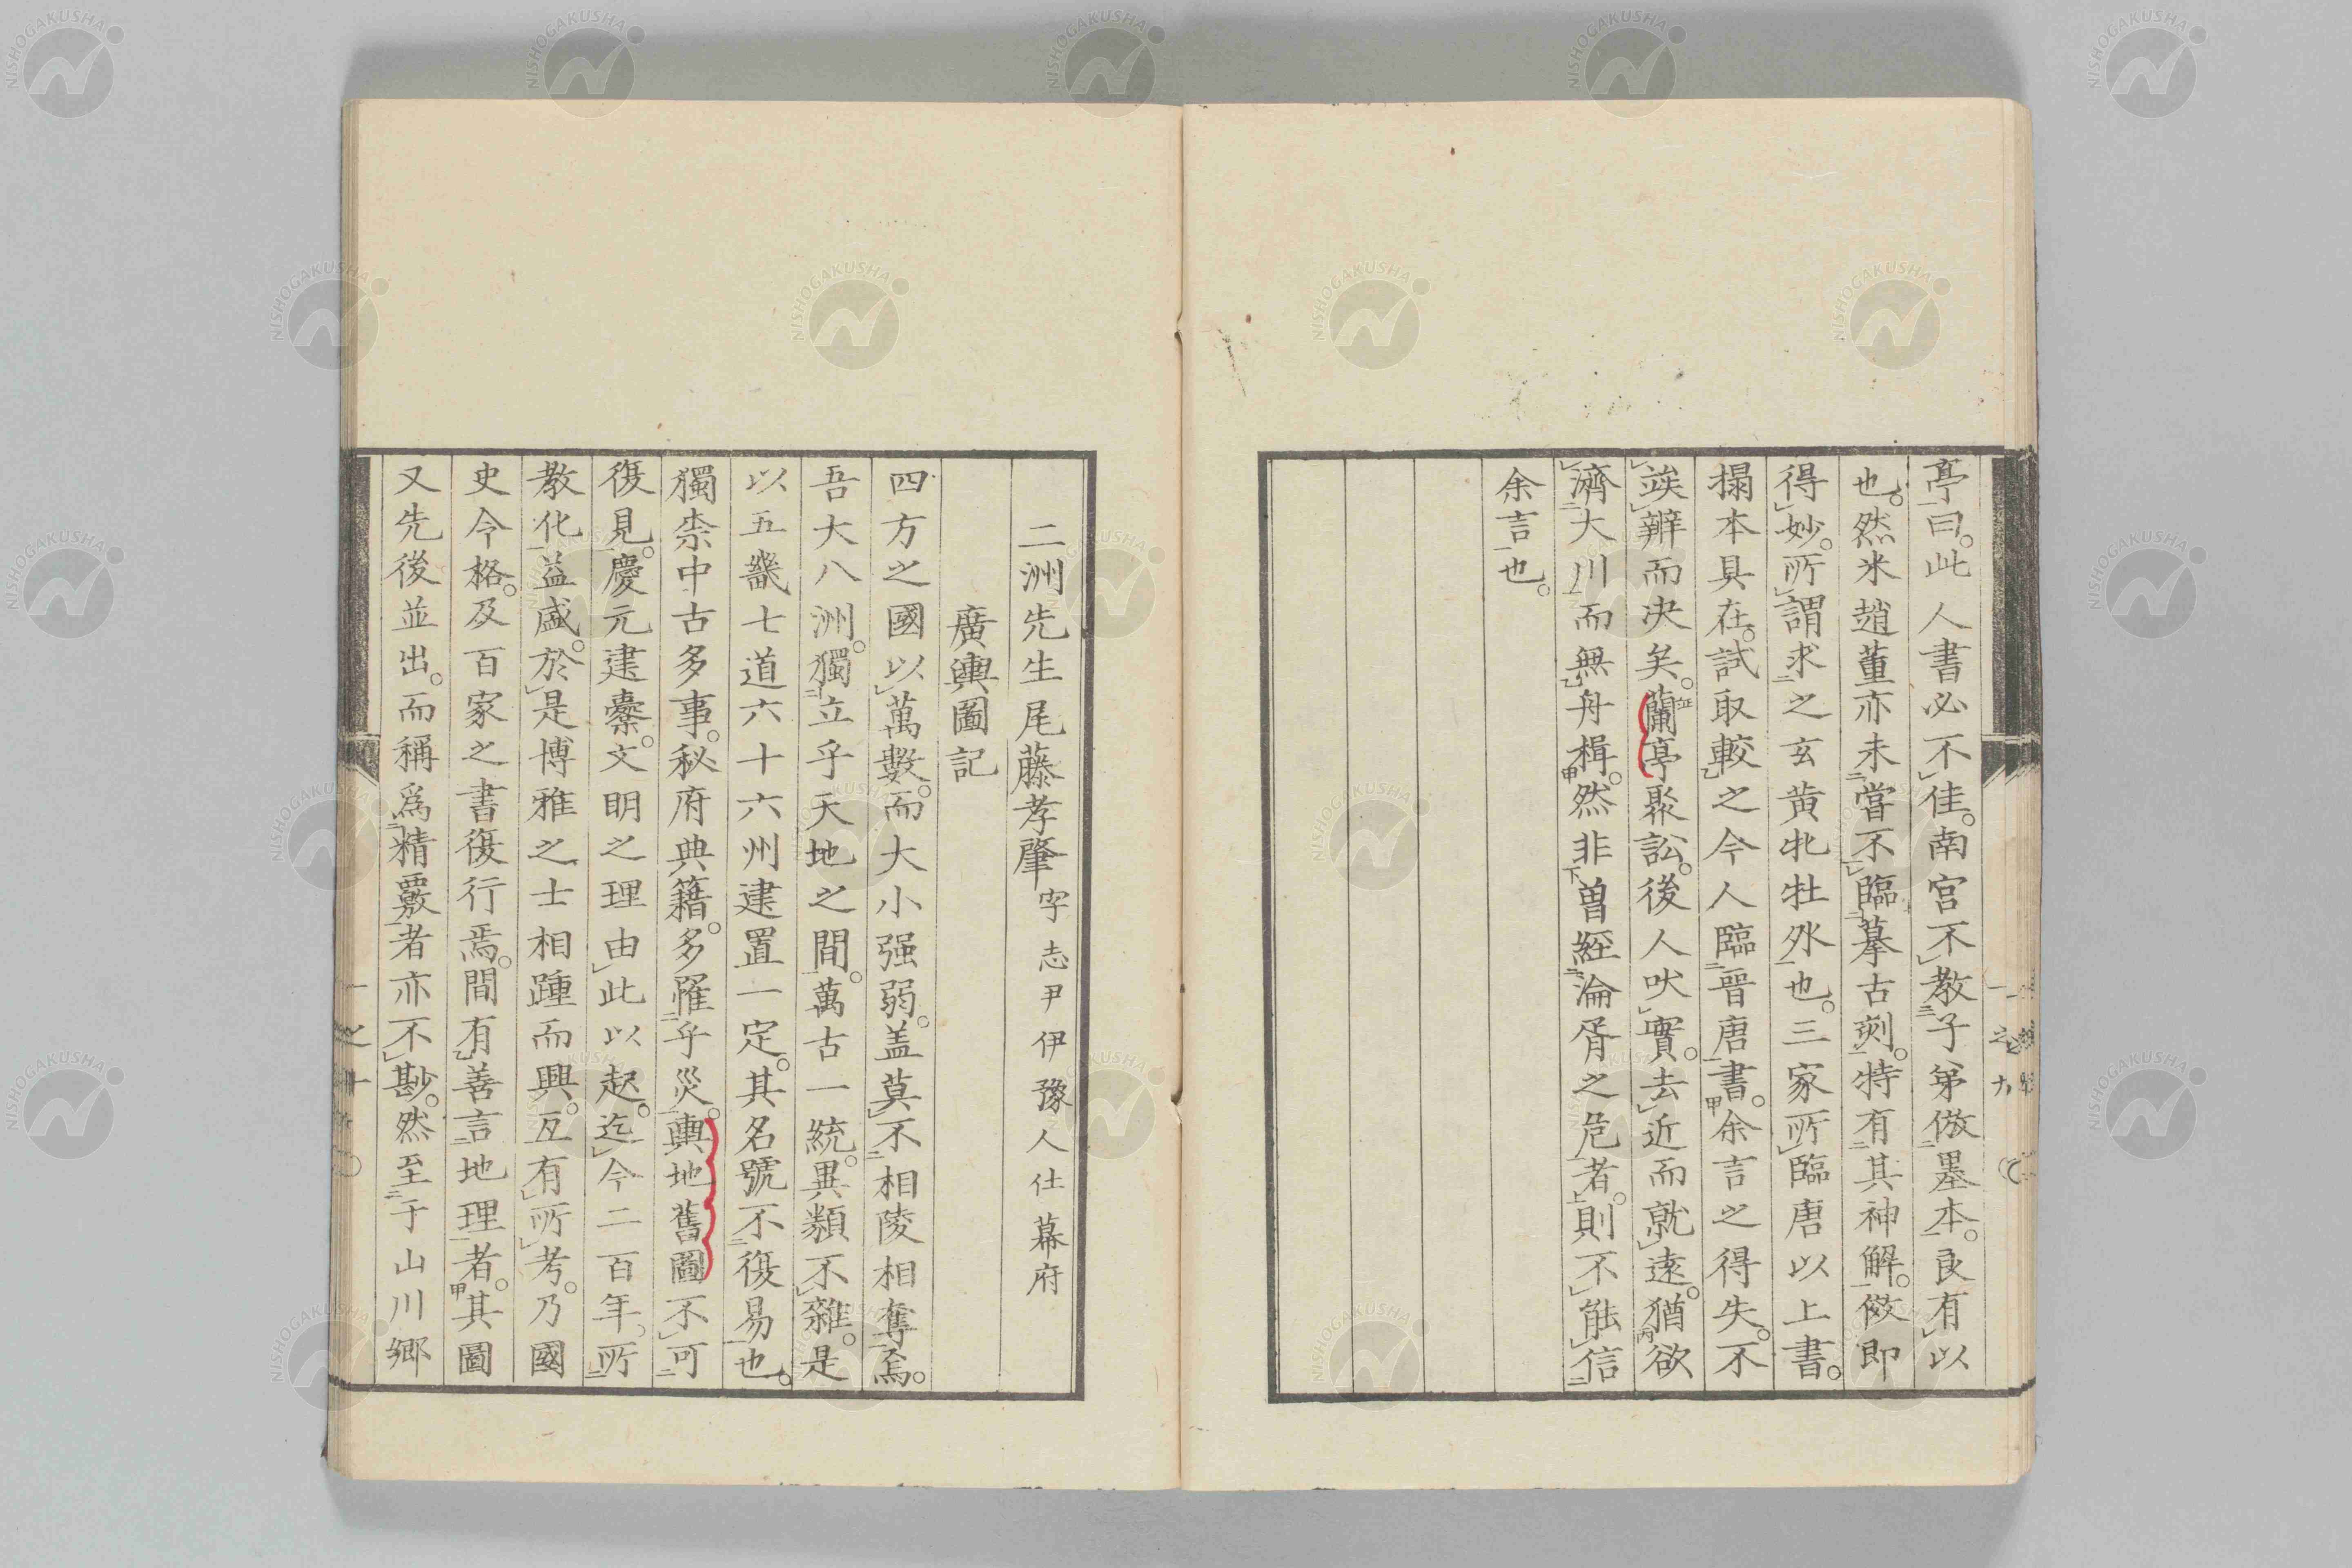 亭曰。此人書必不佳。南宮不教子弟倣墨本。良有以
也。然米趙董亦未嘗不臨摹古刻。特有其神解。傚即
得妙。所謂求之玄黄牝牡外也。三家所臨唐以上書。
搨本具在。試取較之今人臨晋唐書。余言之得失。不
竢辨而决矣。蘭亭聚訟。後人吠實。去近而就遠。猶欲
濟大川而無舟楫。然非曽經淪胥之危者。則不能信
余言也。
二洲先生尾藤孝肇 字志尹伊豫人仕幕府
廣輿圖記
四方之國以萬數。而大小强弱。盖莫不相陵相奪焉。
吾大八洲。獨立乎天地之間。萬古一統。異類不雜。是
以五畿七道六十六州建置一定。其名號不復易也。
獨柰中古多事。秘府典籍。多罹乎災。輿地舊圖不可
復見。慶元建櫜。文明之理由此以起。迄今二百年。所
教化益盛。於是博雅之士相踵而興。互有所考。乃國
史令格。及百家之書復行焉。間有善言地理者。其圖
又先後並出。而稱爲精覈者亦不尠。然至于山川郷
NISHOGAKUSHA